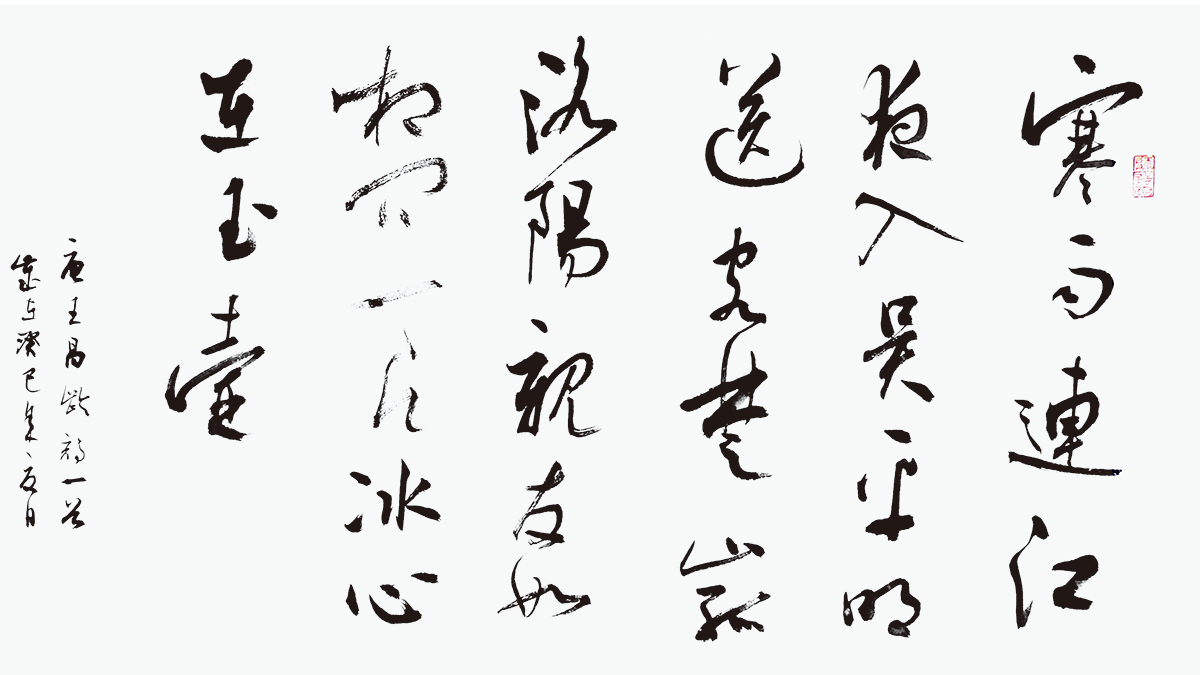 寒雨連江
夜入吳平明
送客楚山孤
洛陽親友如
相問一片冰心
在玉壺
唐王昌齡詩一首
歲在癸巳夏月